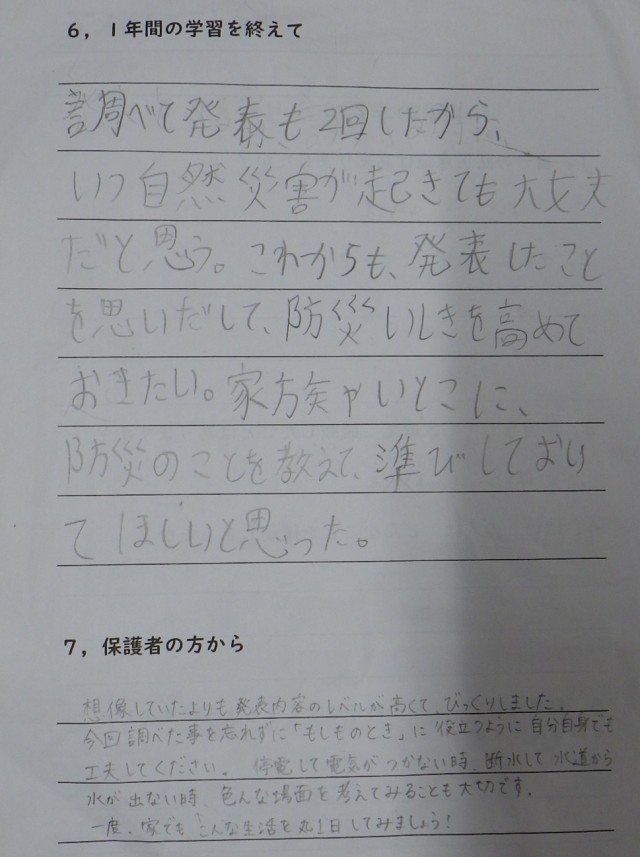 6，1年間の学習を終えて
調べて発表も2回したから、
いつ自然災害が起きても大丈夫
だと思う。これからも、発表したこと
を思いだして、防災いしきを高めて
おきたい。家族やいとこに、
防災のことを教えて、準びしており
てほしいと思った。
7，保護者の方から
想像していたよりも発表内容のレベルが高くて、びっくりしました。
今回調べた事を忘れずに「もしものとき」に役立つように自分自身でも
工夫してください。 停電して電気がつかない時、断水して水道から
水が出ない時、色んな場面を考えてみることも大切です。
一度、家でもこんな生活を丸1日してみましょう！